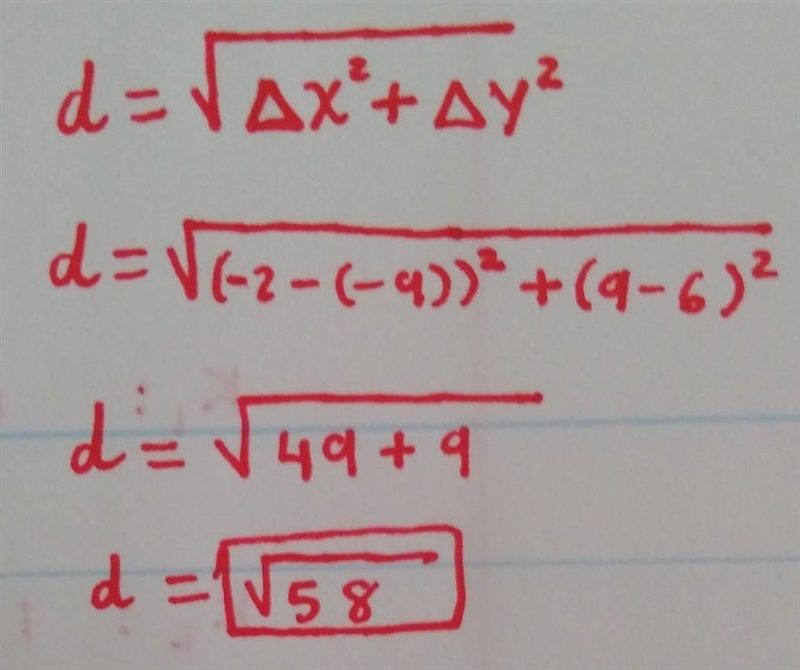 d = √(Δx² + Δy²)
d = √((-2 - (-9))² + (9 - 6)²)
d = √(49 + 9)
d = √58